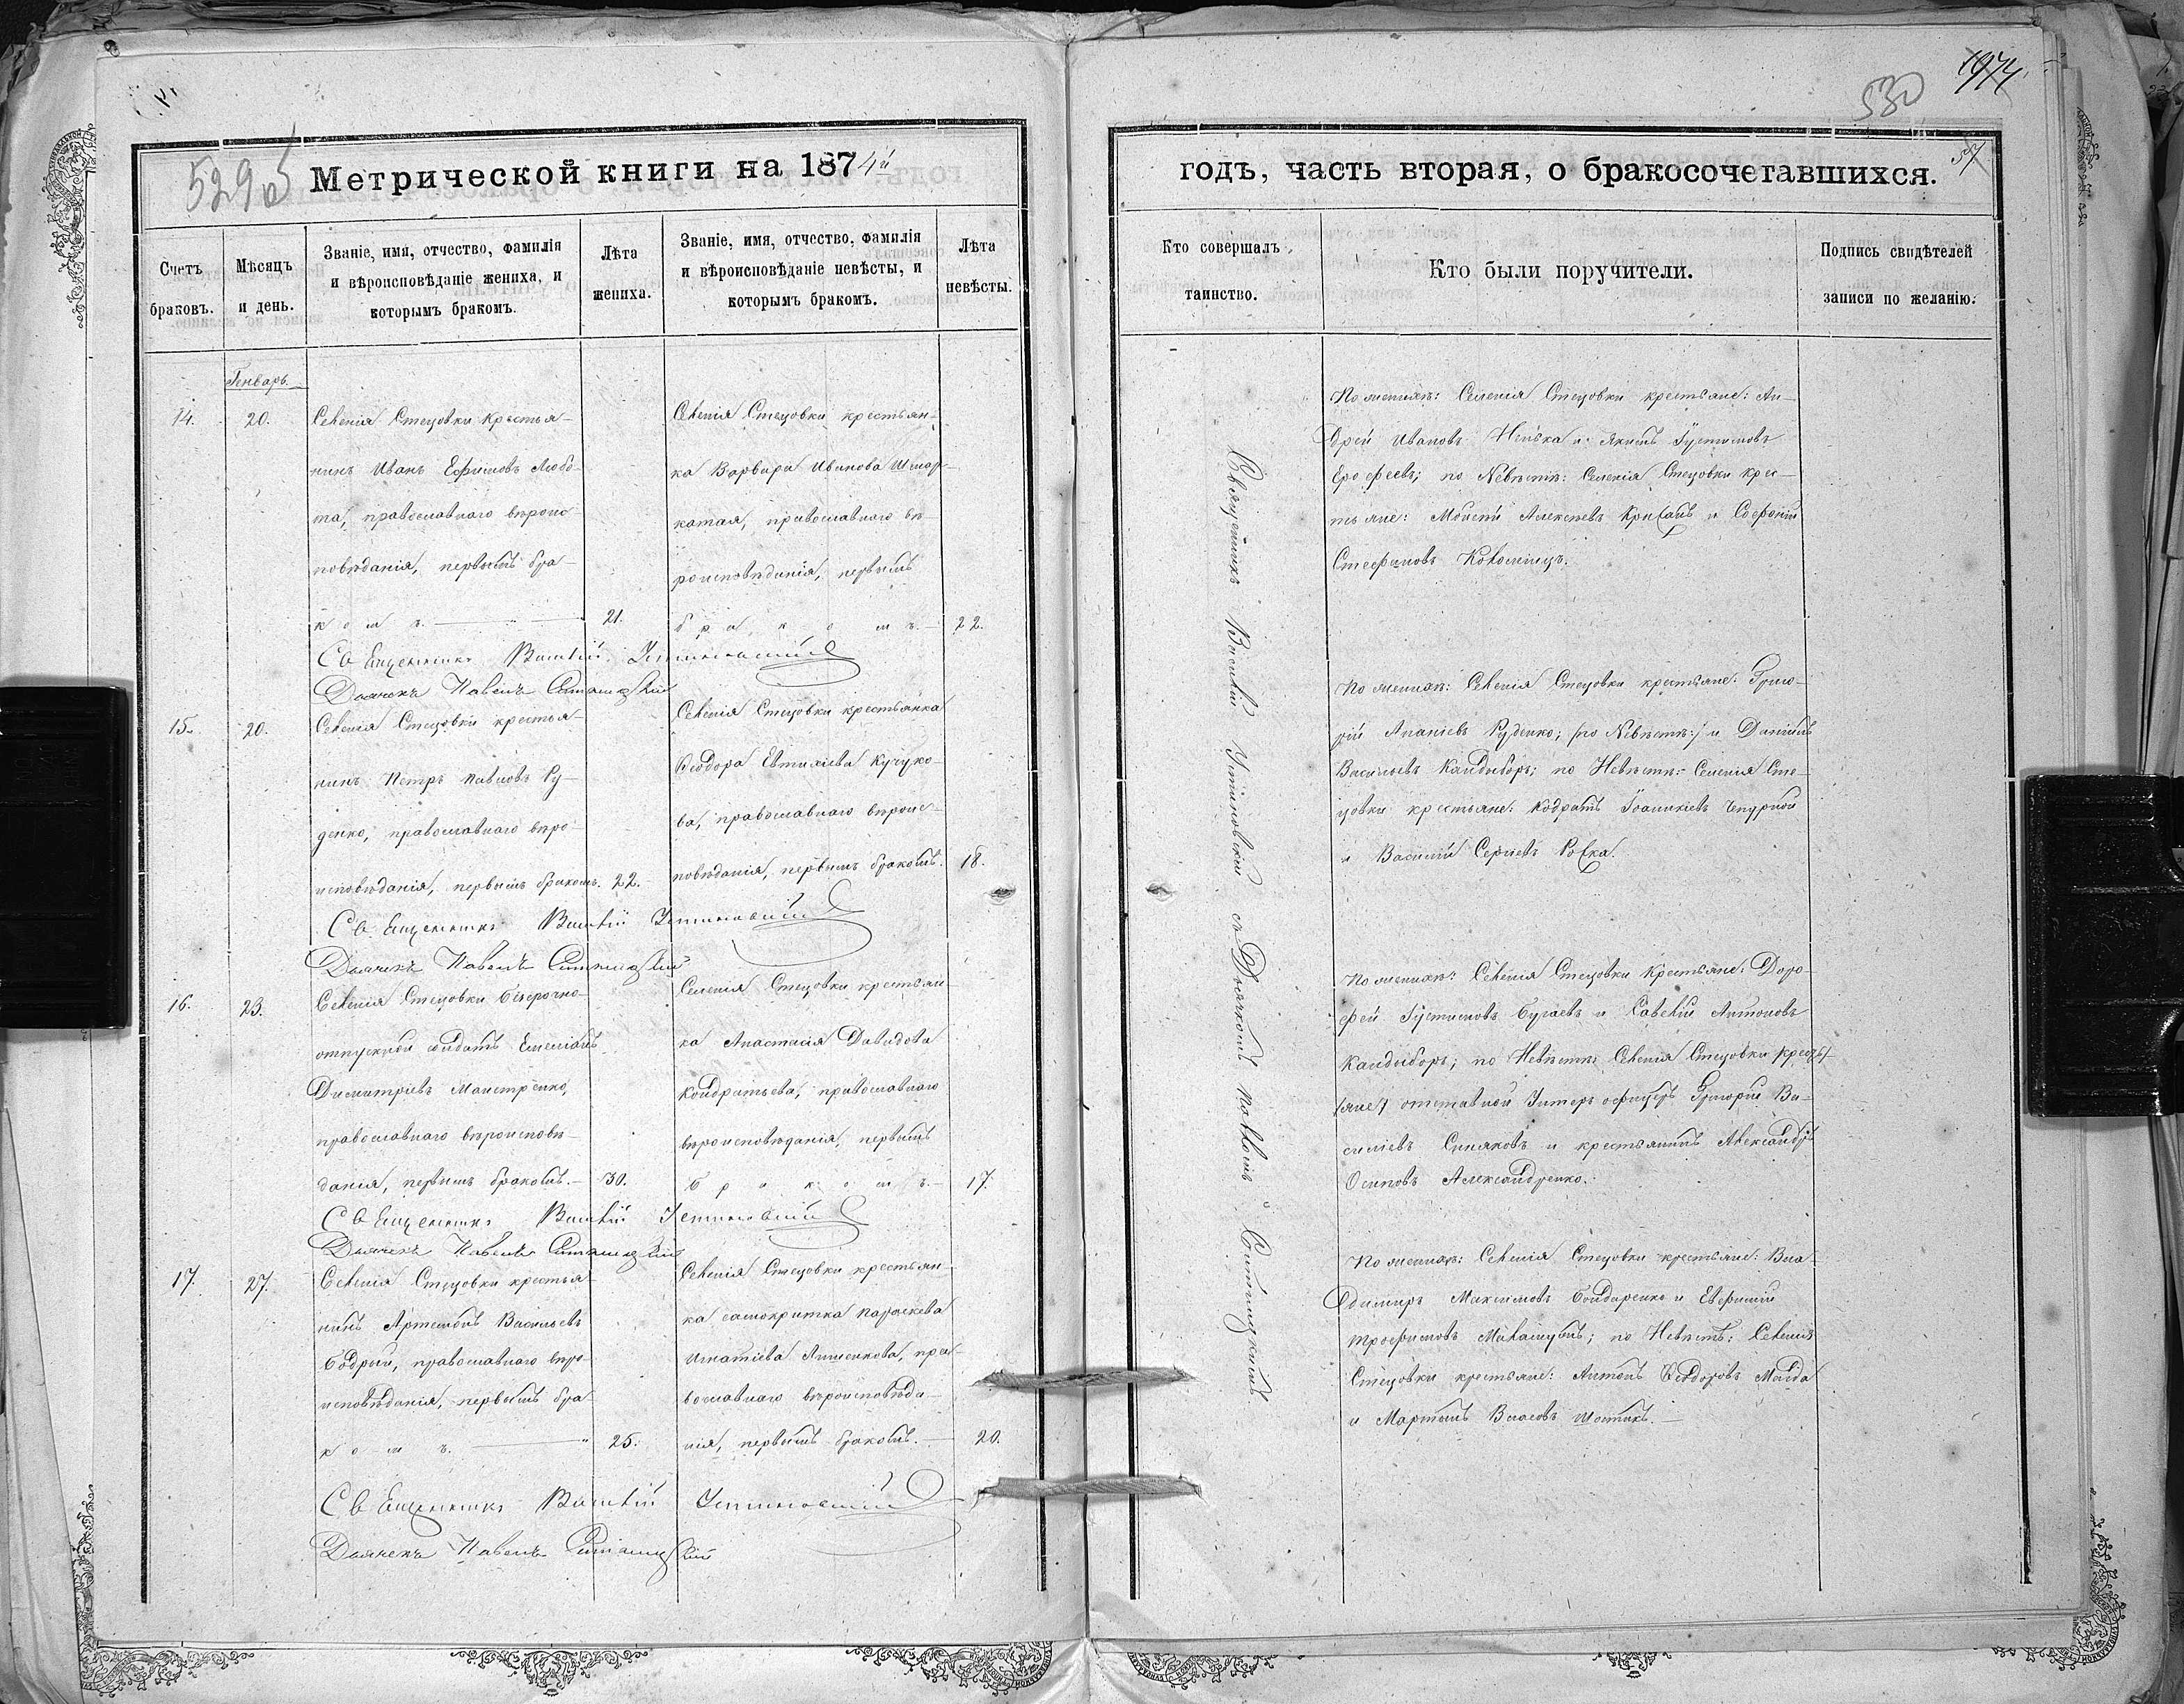 529 об
Метрической книги на 1874й
Счетъ браковъ.
Мѣсяцъ и день.
Званіе, имя, отчество, фамилія
и вѣроисповѣданіе жениха, и
которымъ бракомъ.
Лѣта
жениха.
Званіе, имя, отчество, фамилія
и вѣроисповѣданіе невѣсты, и
которымъ бракомъ.
Лѣта
невѣсты.
Генварь.
14.
20.
Селенія Стецовки крестья-
нинъ Иванъ Ефимовъ Любо-
та, православнаго вѣроис-
повѣданія, первымъ бра-
комъ.
21.
Селенія Стецовки крестьян-
ка Варвара Иванова
православнаго вѣ-
роисповѣданія, первымъ
бракомъ.
22.
Священникъ Василій Устиновскій
Дьячекъ Павелъ
15.
20.
Селенія Стецовки крестья-
нинъ Петръ Павловъ Ру-
денко, православнаго вѣро-
исповѣданія, первымъ бракомъ.
22.
Селенія Стецовки крестьянка
Ѳеодора Евтихіева Кучуко-
ва, православнаго вѣроис-
повѣданія, первымъ бракомъ.
18.
Священникъ Василій Устиновскій
Дьячекъ Павелъ
16.
23.
Селенія Стецовки безсрочно-
отпускной солдатъ Емеліанъ
Димитріевъ Маистренко,
православнаго вѣроисповѣ-
данія, первымъ бракомъ.
30.
Селенія Стецовки крестьян-
ка Анастасія Давидова
Кондратьева, православнаго
вѣроисповѣданія, первымъ
бракомъ.
17.
Священникъ Василій Устиновскій
Дьячекъ Павелъ
17.
27.
Селенія Стецовки крестья-
нинъ Артемонъ Васильевъ
Бодрый, православнаго вѣро-
исповѣданія, первымъ бра-
комъ.
25.
Селенія Стецовки крестьян-
ка Параскева
Игнатіева пра-
вославнаго вѣроисповѣда-
нія, первымъ бракомъ.
20.
Священникъ Василій Устиновскій
Дьячекъ Павелъ
530
57
годъ, часть вторая, о бракосочетавшихся.
Кто совершалъ
таинство.
Кто были поручители.
Подпись свидѣтелей
записи по желанію.
Священникъ Василій Устиновскій съ Дьячкомъ Павломъ
По женихѣ: Селенія Стецовки крестьяне: Ан-
дрей Ивановъ и Якимъ Іустиновъ
Ерофеевъ; по Невѣстѣ: Селенія Стецовки крес-
тьяне: Моисей Алексѣевъ и Софоній
Стефановъ Коломіецъ.
По женихѣ: Селенія Стецовки крестьяне: Григо-
рій Ананіевъ Руденко; (по Невѣстѣ:) и Даніилъ
Васильевъ Кандыборъ; по Невѣстѣ: Селенія Сте-
цовки крестьяне: Кодратъ Іоанникіевъ Чепурной
и Василій Сергѣевъ
По женихѣ: Селенія Стецовки крестьяне: Доро-
фей Іустиновъ Бугаевъ и Савелій Антоновъ
Кандыборъ; по Невѣстѣ: Селенія Стецовки (кресть-
яне) отставной Унтеръ офицеръ Григорій Ва-
силіевъ Синяковъ и крестьянинъ Александръ
Осиповъ Александренко.
По женихѣ: Селенія Стецовки крестьяне: Вла-
димиръ Максимовъ Бондаренко и Евфимій
Трофимовъ по Невѣстѣ: Селенія
Стецовки крестьяне: Антонъ Ѳеодоровъ
и Мартынъ Власовъ